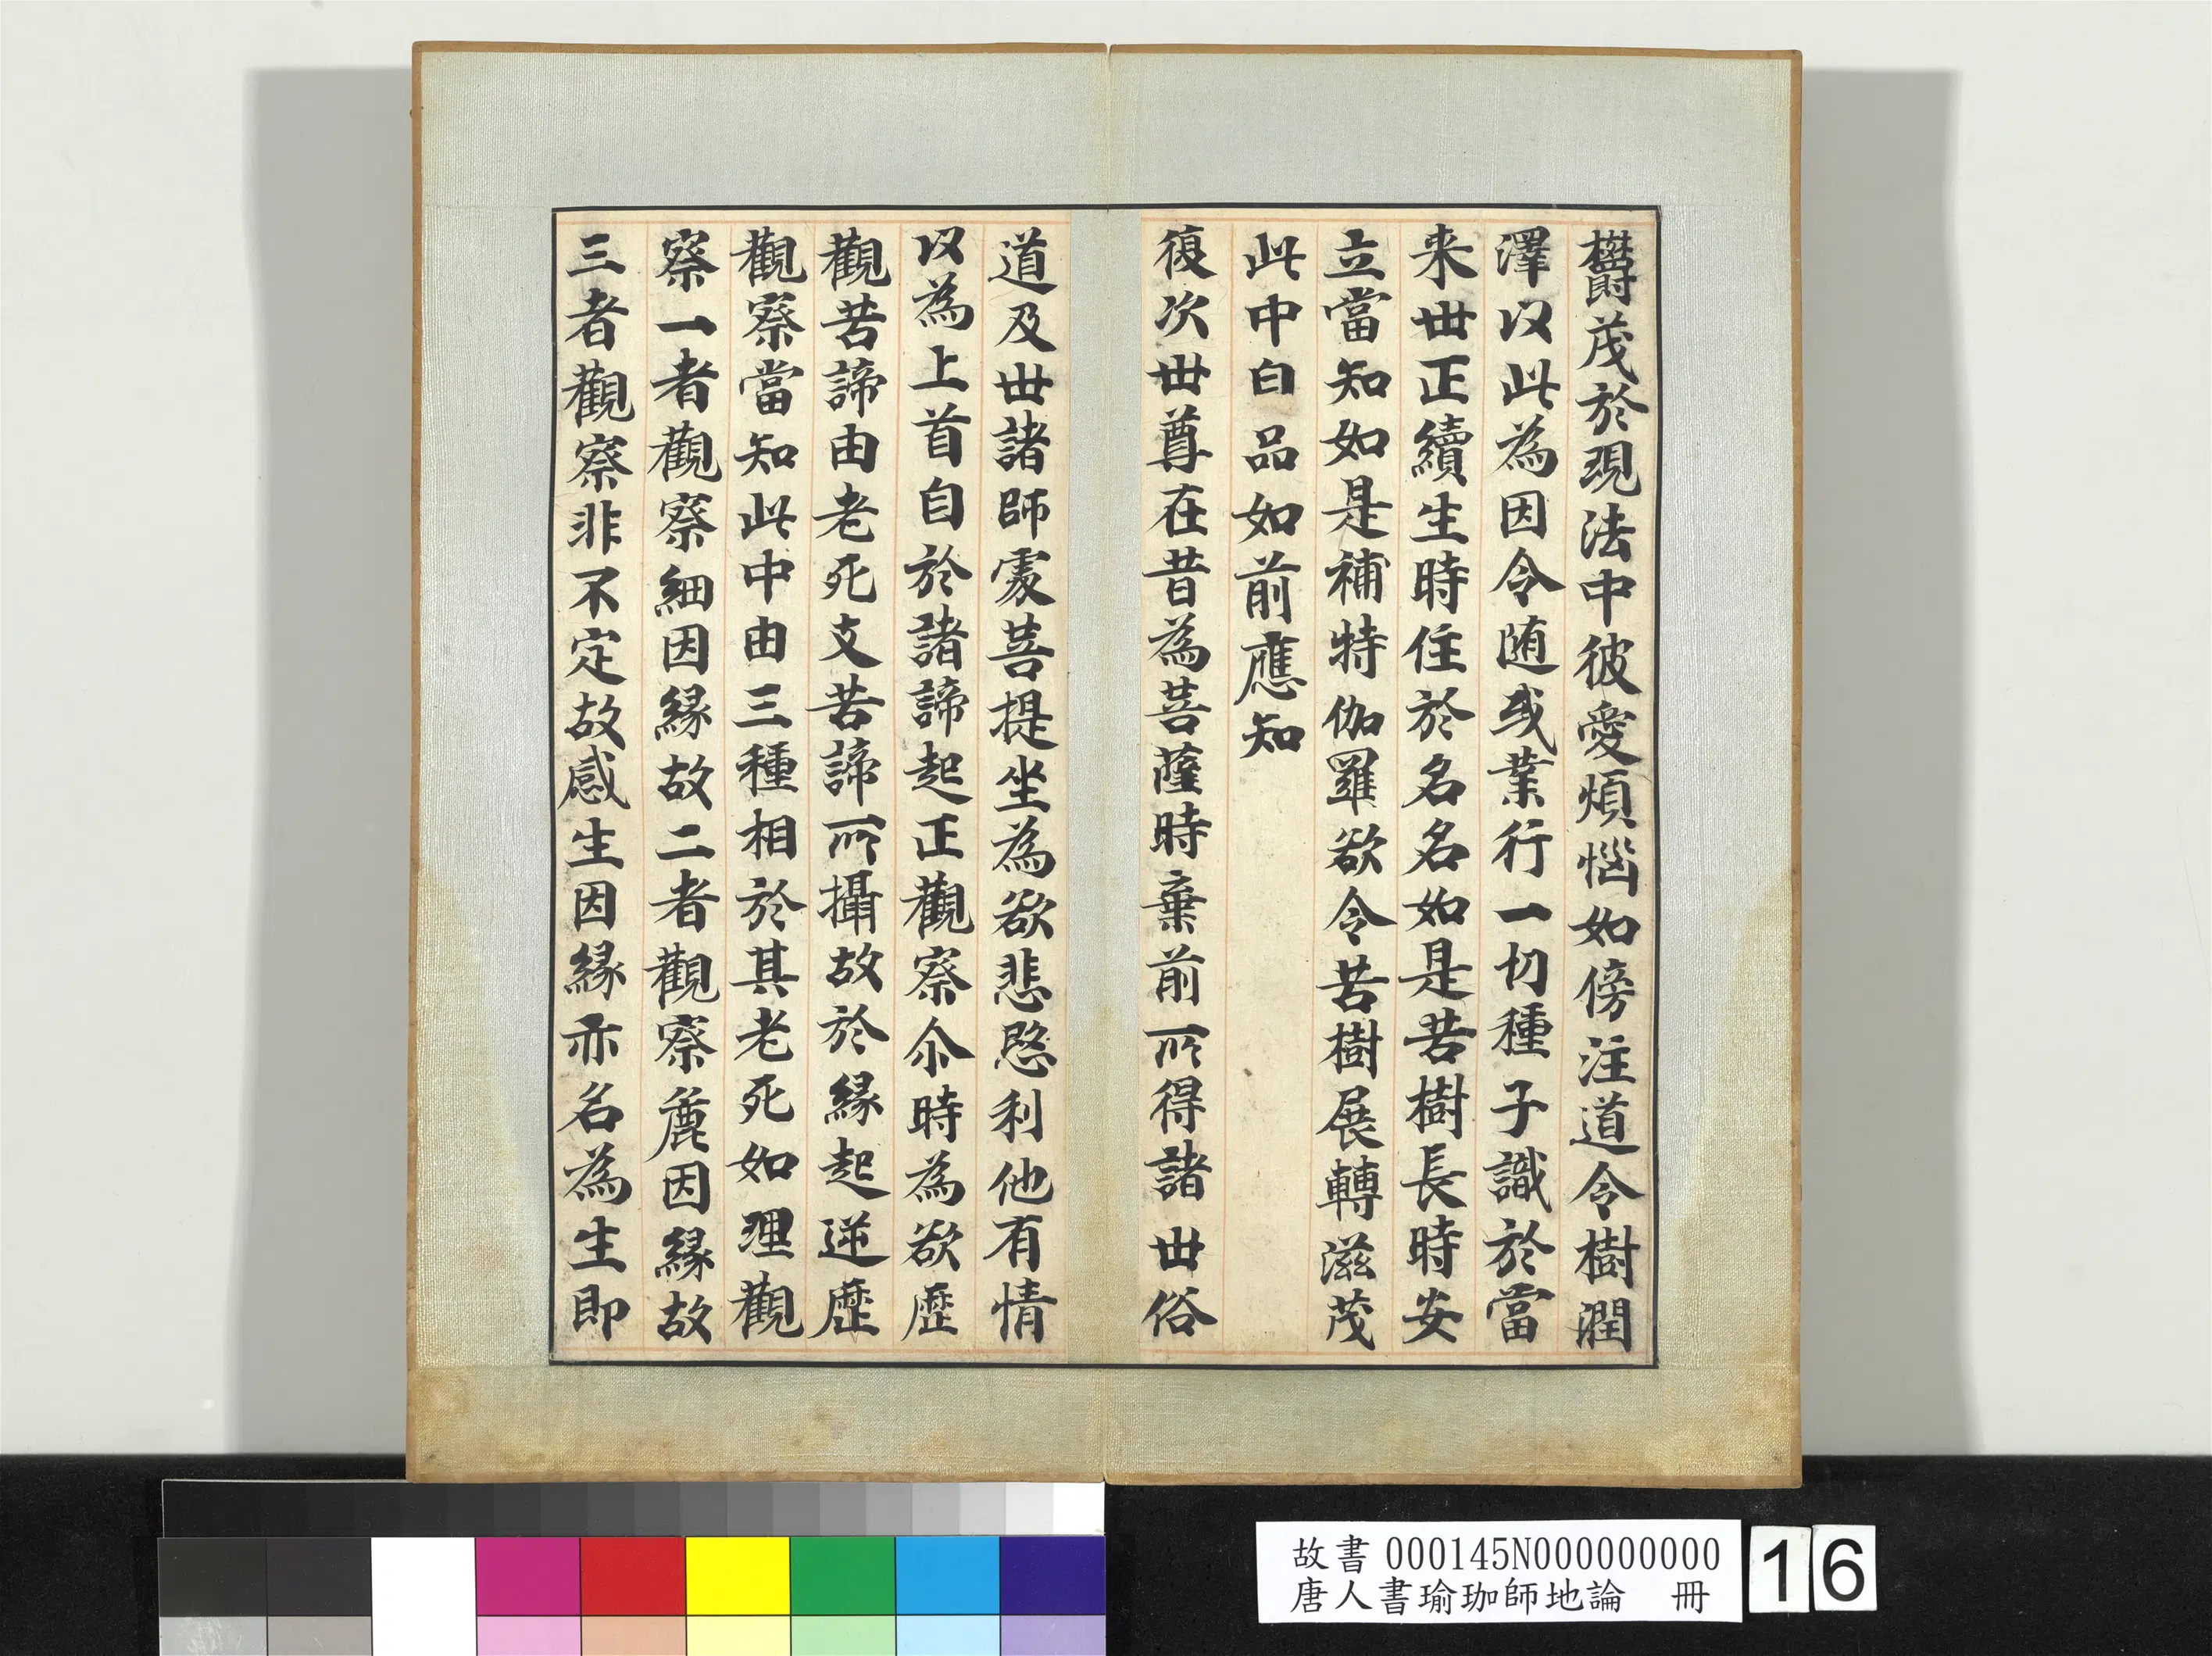 欝茂於現法中彼愛煩惱如傍注道令樹潤
澤以此為因令随或業行一切種子識於當
来世正續生時住於名名如是苦樹長時安
立當知如是補特伽羅欲令苦樹展轉滋茂
此中白品如前應知
復次世尊在昔為菩薩時棄前所得諸世俗
道及世諸師處菩提坐為欲悲愍利他有情
以為上首自於諸諦起正觀察尒時為欲歷
觀苦諦由老死支苦諦所攝故於緣起逆歷
觀察當知此中由三種相於其老死如理觀
察一者觀察細因緣故二者觀察麁因緣故
三者觀察非不定故感生因緣亦名為生即
故書 000145N000000000
唐人書瑜珈師地論 冊
16